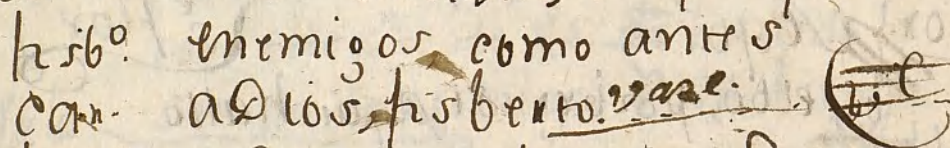 fisbº. enemigos como antes
Can. aDios, fisberto. vase.